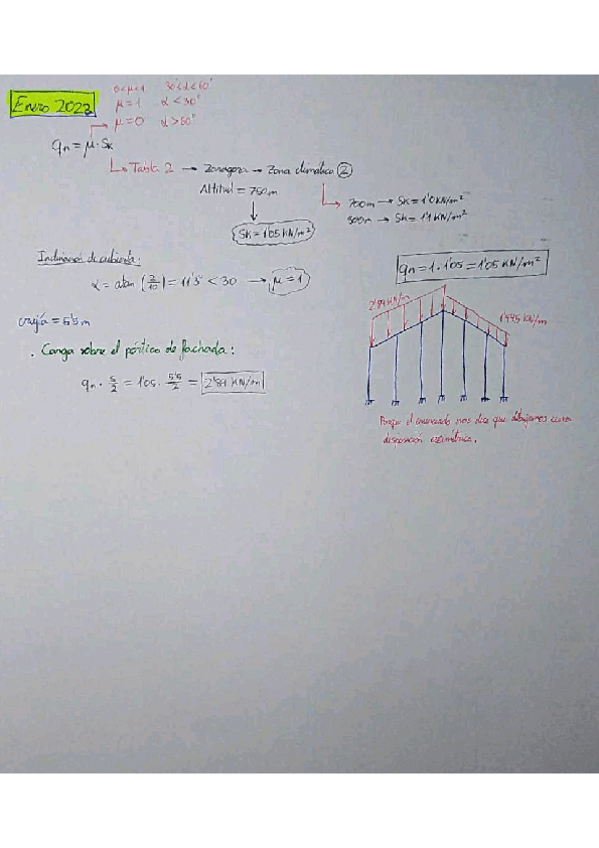 Enero 2022
0<μ<1 30°<α<60°
μ=1 α<30°
μ=0 α>60°
qn = μ·Sk
Tabla 2 → Zaragoza → Zona climática 2
Altitud = 750m
700m → Sk = 1'0 KN/m²
800m → Sk = 1'1 KN/m²
Sk = 1'05 KN/m²
Inclinación de cubierta:
α = atan (2/10) = 11'3 < 30 → μ=1
qn = 1·1'05 = 1'05 KN/m²
crujía = 5'5m
· Carga sobre el pórtico de fachada:
qn · S/2 = 1'05 · 5'5/2 = 2'89 KN/m
2'89 KN/m
1'445 KN/m
Porque el enunciado nos dice que dibujemos una
disposición asimétrica.